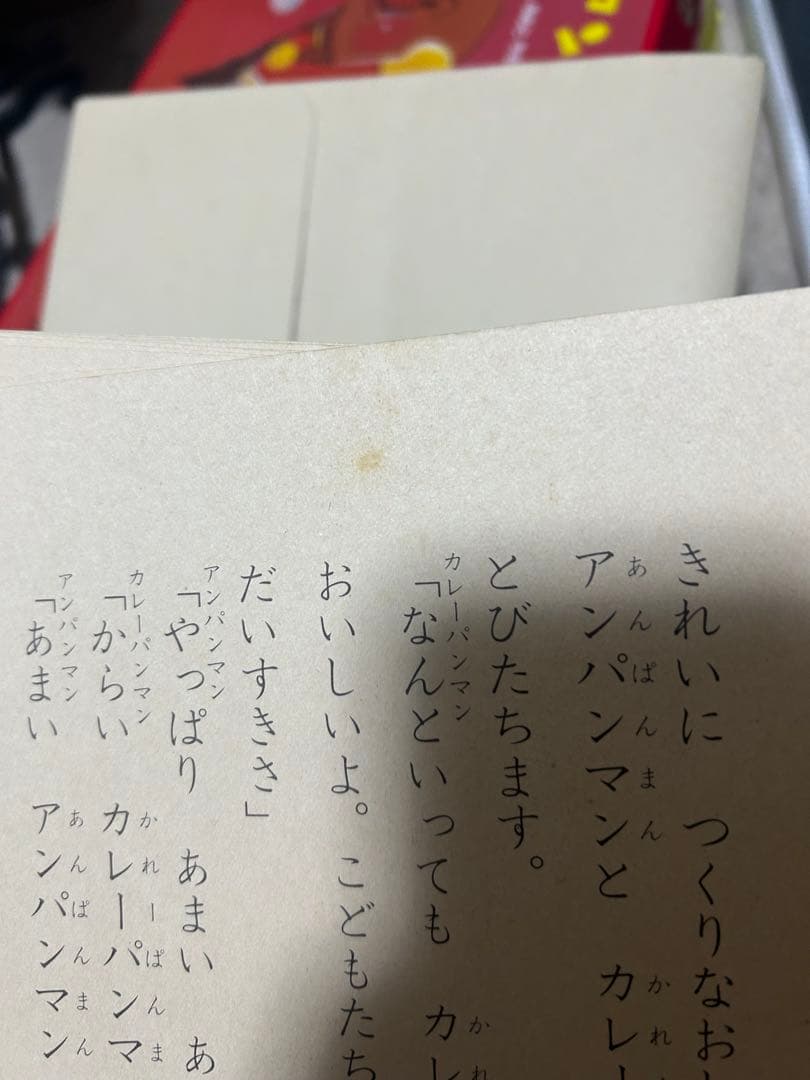 きれいに　つくりなお
アンパンマンと　カレー
あんぱんまん　かれー
とびたちます。
カレーパンマン
「なんといっても　カレ
かれ
おいしいよ。こどもたち
だいすきさ」
アンパンマン
「やっぱり　あまい　あ
カレーパンマン
「からい　カレーパンマ
かれーぱんま
アンパンマン
「あまい　アンパンマン
あんぱんまん